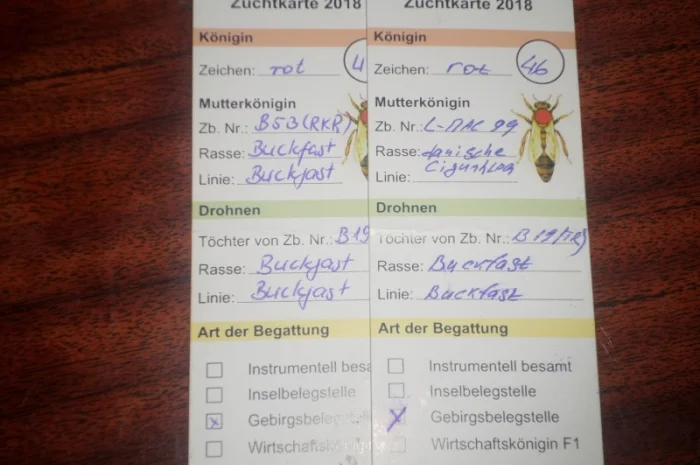 Zuchtkarte 2018
Königin
Zeichen: rot 4
Mutterkönigin
Zb. Nr.: B53(RKR)
Rasse: Buckfast
Linie: Buckfast
Drohnen
Töchter von Zb. Nr.: B19
Rasse: Buckfast
Linie: Buckfast
Art der Begattung
Instrumentell besa
Inselbelegstelle
Gebirgsbelegstelle
Wirtschaftskönig
Zuchtkarte 2018
Königin
Zeichen: rot 46
Mutterkönigin
Zb. Nr.:
Rasse:
Linie:
Drohnen
Töchter von Zb. Nr.:
Rasse: Buckfast
Linie: Buckfast
Art der Begattung
Instrumentell besamt
Inselbelegstelle
Gebirgsbelegstelle
Wirtschaftskönigin F1